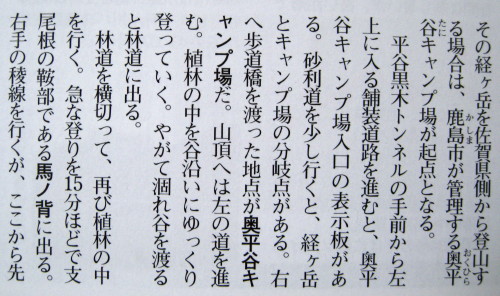 その経ヶ岳を佐賀県側から登山す
る場合は、鹿島市が管理する奥平
谷キャンプ場が起点となる。
平谷黒木トンネルの手前から左
上に入る舗装道路を進むと、奥平
谷キャンプ場入口の表示板があ
る。砂利道を少し行くと、経ヶ岳
とキャンプ場の分岐点がある。右
へ歩道橋を渡った地点が奥平谷キ
ャンプ場だ。山頂へは左の道を進
む。植林の中を谷沿いにゆっくり
登っていく。やがて涸れ谷を渡る
と林道に出る。
林道を横切って、再び植林の中
を行く。急な登りを15分ほどで支
尾根の鞍部である馬ノ背に出る。
右手の稜線を行くが、ここから先